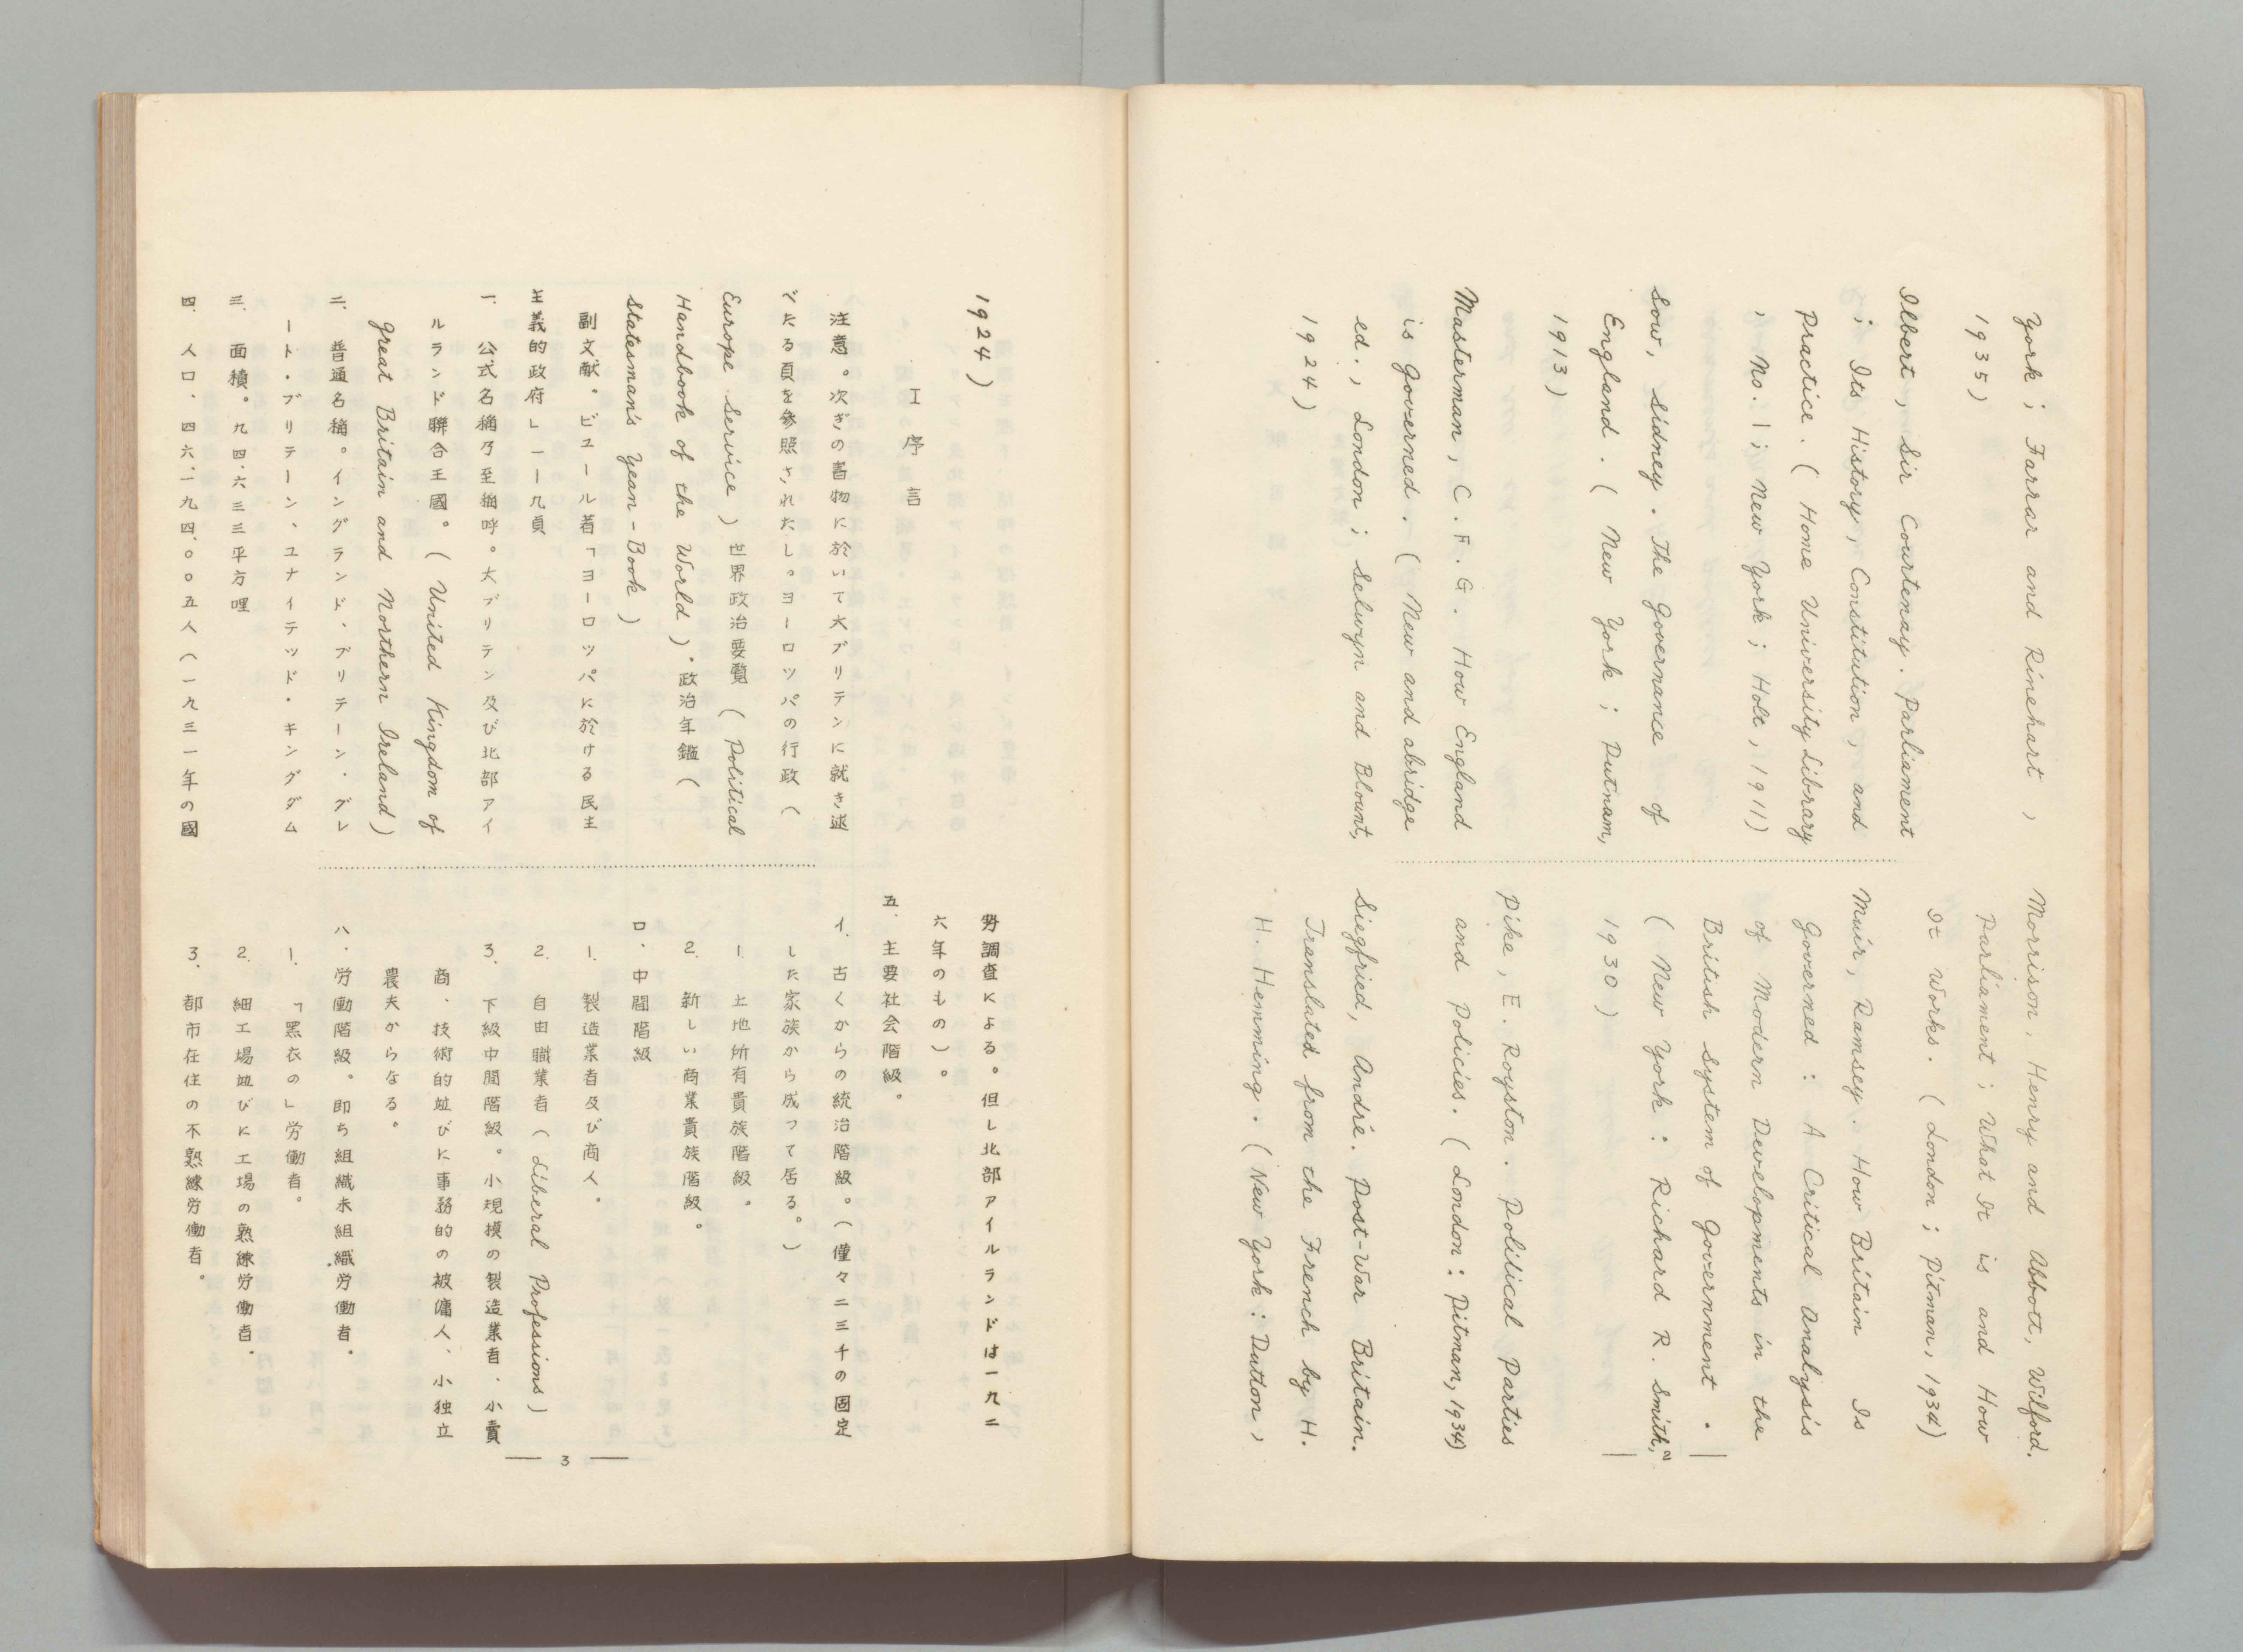 York ; Farrar and Rinehart ,
1935)
Ilbert , Sir Courtenay . Parliament
; Its History, Constitution, and
Practice . ( Home University Library
, No. 1 ; New York ; Holt , 1911)
Low, Sidney . The Governance of
England . ( New York ; Putnam,
1913)
Masterman , C . F . G . How England
is Governed . ( New and abridge
ed. , London ; Selwyn and Blount,
1924)
Morrison, Henry and Abbott, Wilford.
Parliament ; What It is and How
It Works . ( London ; Pitman, 1934)
Muir, Ramsey . How Britain Is
Governed : A Critical Analysis
of Modern Developments in the
British System of Government .
( New York : Richard R . Smith,
1930 )
Pike , E . Royston . Political Parties
and Policies . ( London : Pitman, 1934)
Siegfried, André . Post-War Britain.
Translated from the French by H.
H. Hemming . ( New York : Dutton ,
1924)
I 序言
注意。次ぎの書物に於いて大ブリテンに就き述
べたる頁を参照されたし。ヨーロッパの行政(
Europe Service ) 世界政治要覧 ( Political
Handbook of the World )・政治年鑑(
Statesman's Year-Book )
副文献。ビユール著「ヨーロッパに於ける民主
主義的政府」一ー九頁
一. 公式名稱乃至稱呼。大ブリテン及び北部アイ
ルランド聯合王國。( United Kingdom of
Great Britain and Northern Ireland )
二. 普通名稱。イングランド・ブリテーン・グレ
ート・ブリテーン・ユナイテッド・キングダム
三. 面積。九四.六三三平方哩
四. 人口. 四六.一九四.〇〇五人(一九三一年の國
勢調査による。但し北部アイルランドは一九二
六年のもの)。
五. 主要社会階級。
イ. 古くからの統治階級。(僅々二三千の固定
した家族から成つて居る。)
1. 土地所有貴族階級。
2. 新しい商業貴族階級。
ロ. 中間階級
1. 製造業者及び商人。
2. 自由職業者( Liberal Professions )
3. 下級中間階級。小規模の製造業者、小賣
商、技術的竝びに事務的の被傭人、小独立
農夫からなる。
ハ. 労働階級。即ち組織未組織労働者。
1. 「黒衣の」労働者。
2. 細工場竝びに工場の熟練労働者。
3. 都市在住の不熟練労働者。
— 3 —